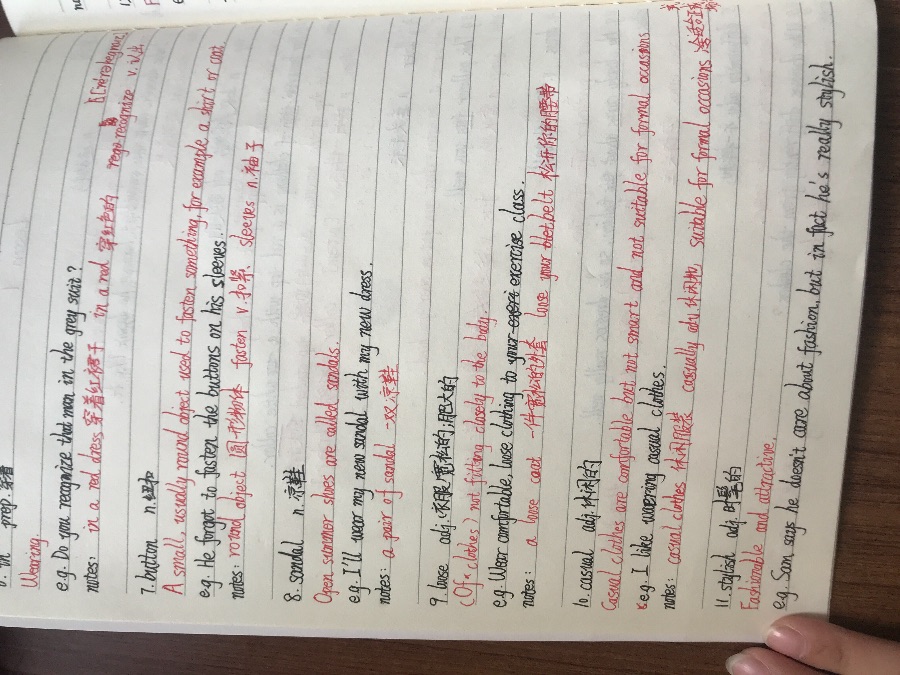 6. in prep. 穿着
Wearing.
e.g. Do you recognize that man in the grey suit?
notes: in a red dress 穿着红裙子 in a red 穿红色的 recognize v. 认出
7. button n. 纽扣
A small usually round object used to fasten something, for example a shirt or coat
eg. He forgot to fasten the buttons on his sleeves.
notes: round object 圆形物体 fasten v. 扣紧 sleeves n. 袖子
8. sandal n. 凉鞋
Open summer shoes are called sandals.
e.g. I'll wear my new sandal with my new dress.
notes: a pair of sandal 一双凉鞋
9. loose adj. (衣服)宽松的;肥大的
(Of clothes) not fitting closely to the body.
e.g. Wear comfortable, loose clothing to your exercise class.
notes: a loose coat 一件宽松的外套 lose your belt 松开你的腰带
10. casual adj. 休闲的
Casual clothes are comfortable but not smart and not suitable for formal occasions
e.g. I like wearing casual clothes.
notes: casual clothes 休闲服装 casually adv. 休闲地 suitable for formal occasions
11. stylish adj. 时髦的
Fashionable and attractive.
e.g. Sam says he doesn't care about fashion, but in fact he's really stylish.